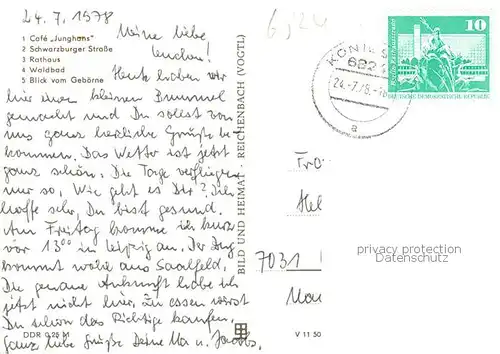 24.7.1978
Meine liebe
1 Café „Junghans"
2 Schwarzburger Straße
3 Rathaus
4 Waldbad
5 Blick vom Gebörne
Heute haben wir
hier einen kleinen Bummel
gemacht und Du sollst von
uns ganz herzliche Grüße be-
kommen. Das Wetter ist jetzt
ganz schön. Die Tage verfliegen
nur so. Wie geht es Dir? Ich
hoffe sehr, Du bist gesund.
Am Freitag komme ich kurz
vor 13⁰⁰ in Leipzig an. Der Zug
kommt wohl aus Saalfeld.
Die genaue Ankunft habe ich
jetzt nicht hier. Zu essen wirst
Du schon das Richtige kaufen.
Ganz liebe Grüße Deine Ma u. Jacobs.
DDR 0,25 M
BILD UND HEIMAT · REICHENBACH (VOGTL)
V 11 50
KÖNI
682
24.-7.78.-1
a
10
DEUTSCHE DEMOKRATISCHE REPUBLIK
7031
privacy protection
Datenschutz